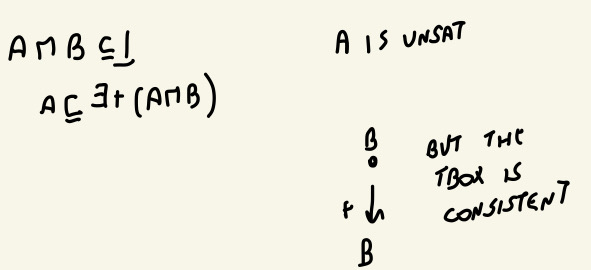 A ⊓ B ⊑ ⊥
A ⊑ ∃r (A ⊓ B)
A IS UNSAT
B
r
B
BUT THE
TBOX IS
CONSISTENT